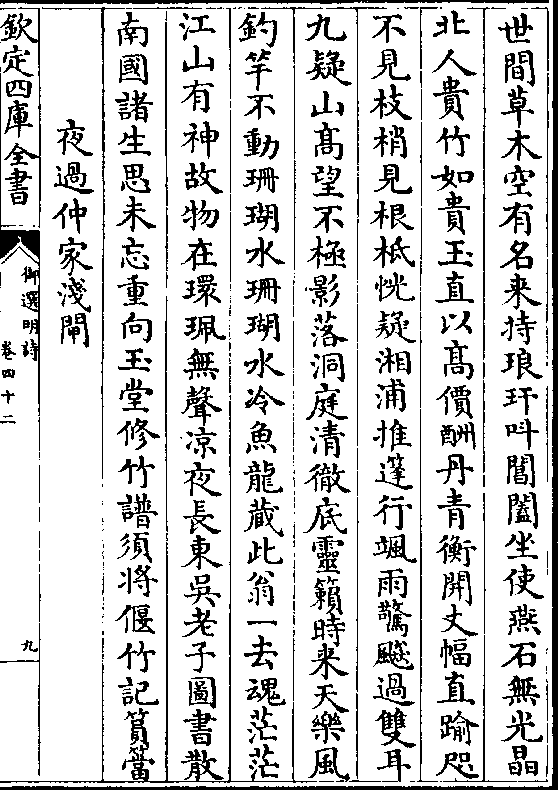 世間草木空有名来持琅玕呌閶闔坐使燕石無光晶
北人貴竹如貴玉直以髙價酬丹青衡開丈幅直踰咫
不見枝梢見根柢恍疑湘浦推蓬行颯雨驚飇過雙耳
九疑山髙望不極影落洞庭清徹底靈籟時来天樂風
釣竿不動珊瑚水珊瑚水冷魚龍蔵此翁一去魂茫茫
江山有神故物在環珮無聲凉夜長東吳老子圖書散
南國諸生思未忘重向玉堂修竹譜須將偃竹記篔簹
夜過仲家淺閘
欽定四庫全書
御選明詩
卷四十二
九